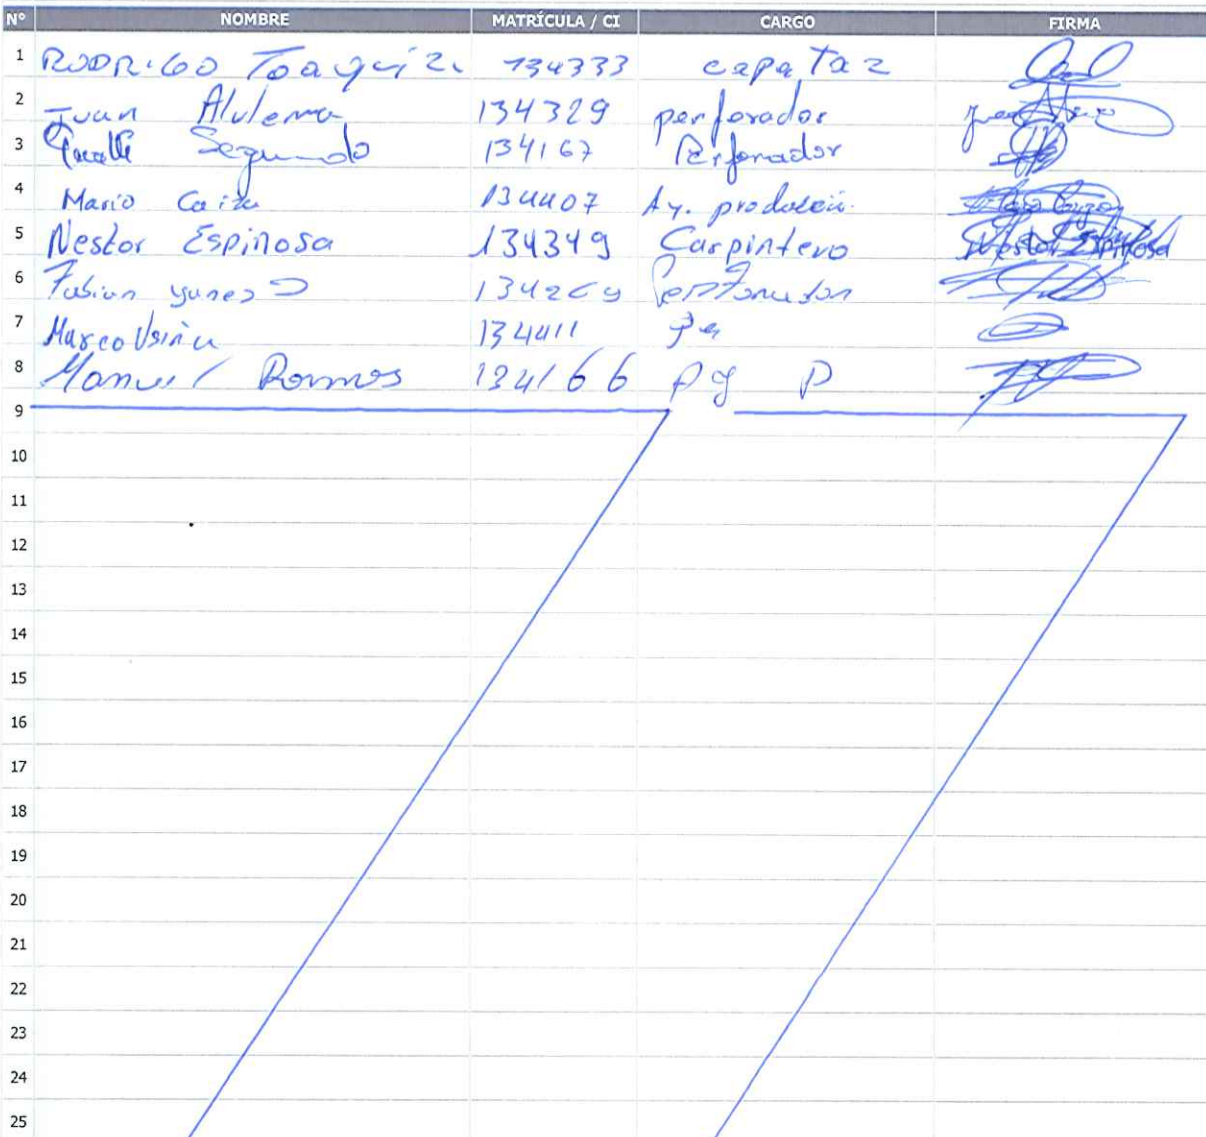 N° NOMBRE MATRÍCULA / CI CARGO FIRMA
1 RODRIGO Toaquiza 134333 capataz
2 Juan Alulema 134329 perforador
3 Segundo 134167 Perforador
4 Mario Caiza 134407 Ay. producción
5 Nestor Espinosa 134349 Carpintero Nestor Espinosa
6 Fabian yanez 134269
7 Marco 134411
8 Manuel Ramos 134166 Ay P
9
10
11
12
13
14
15
16
17
18
19
20
21
22
23
24
25